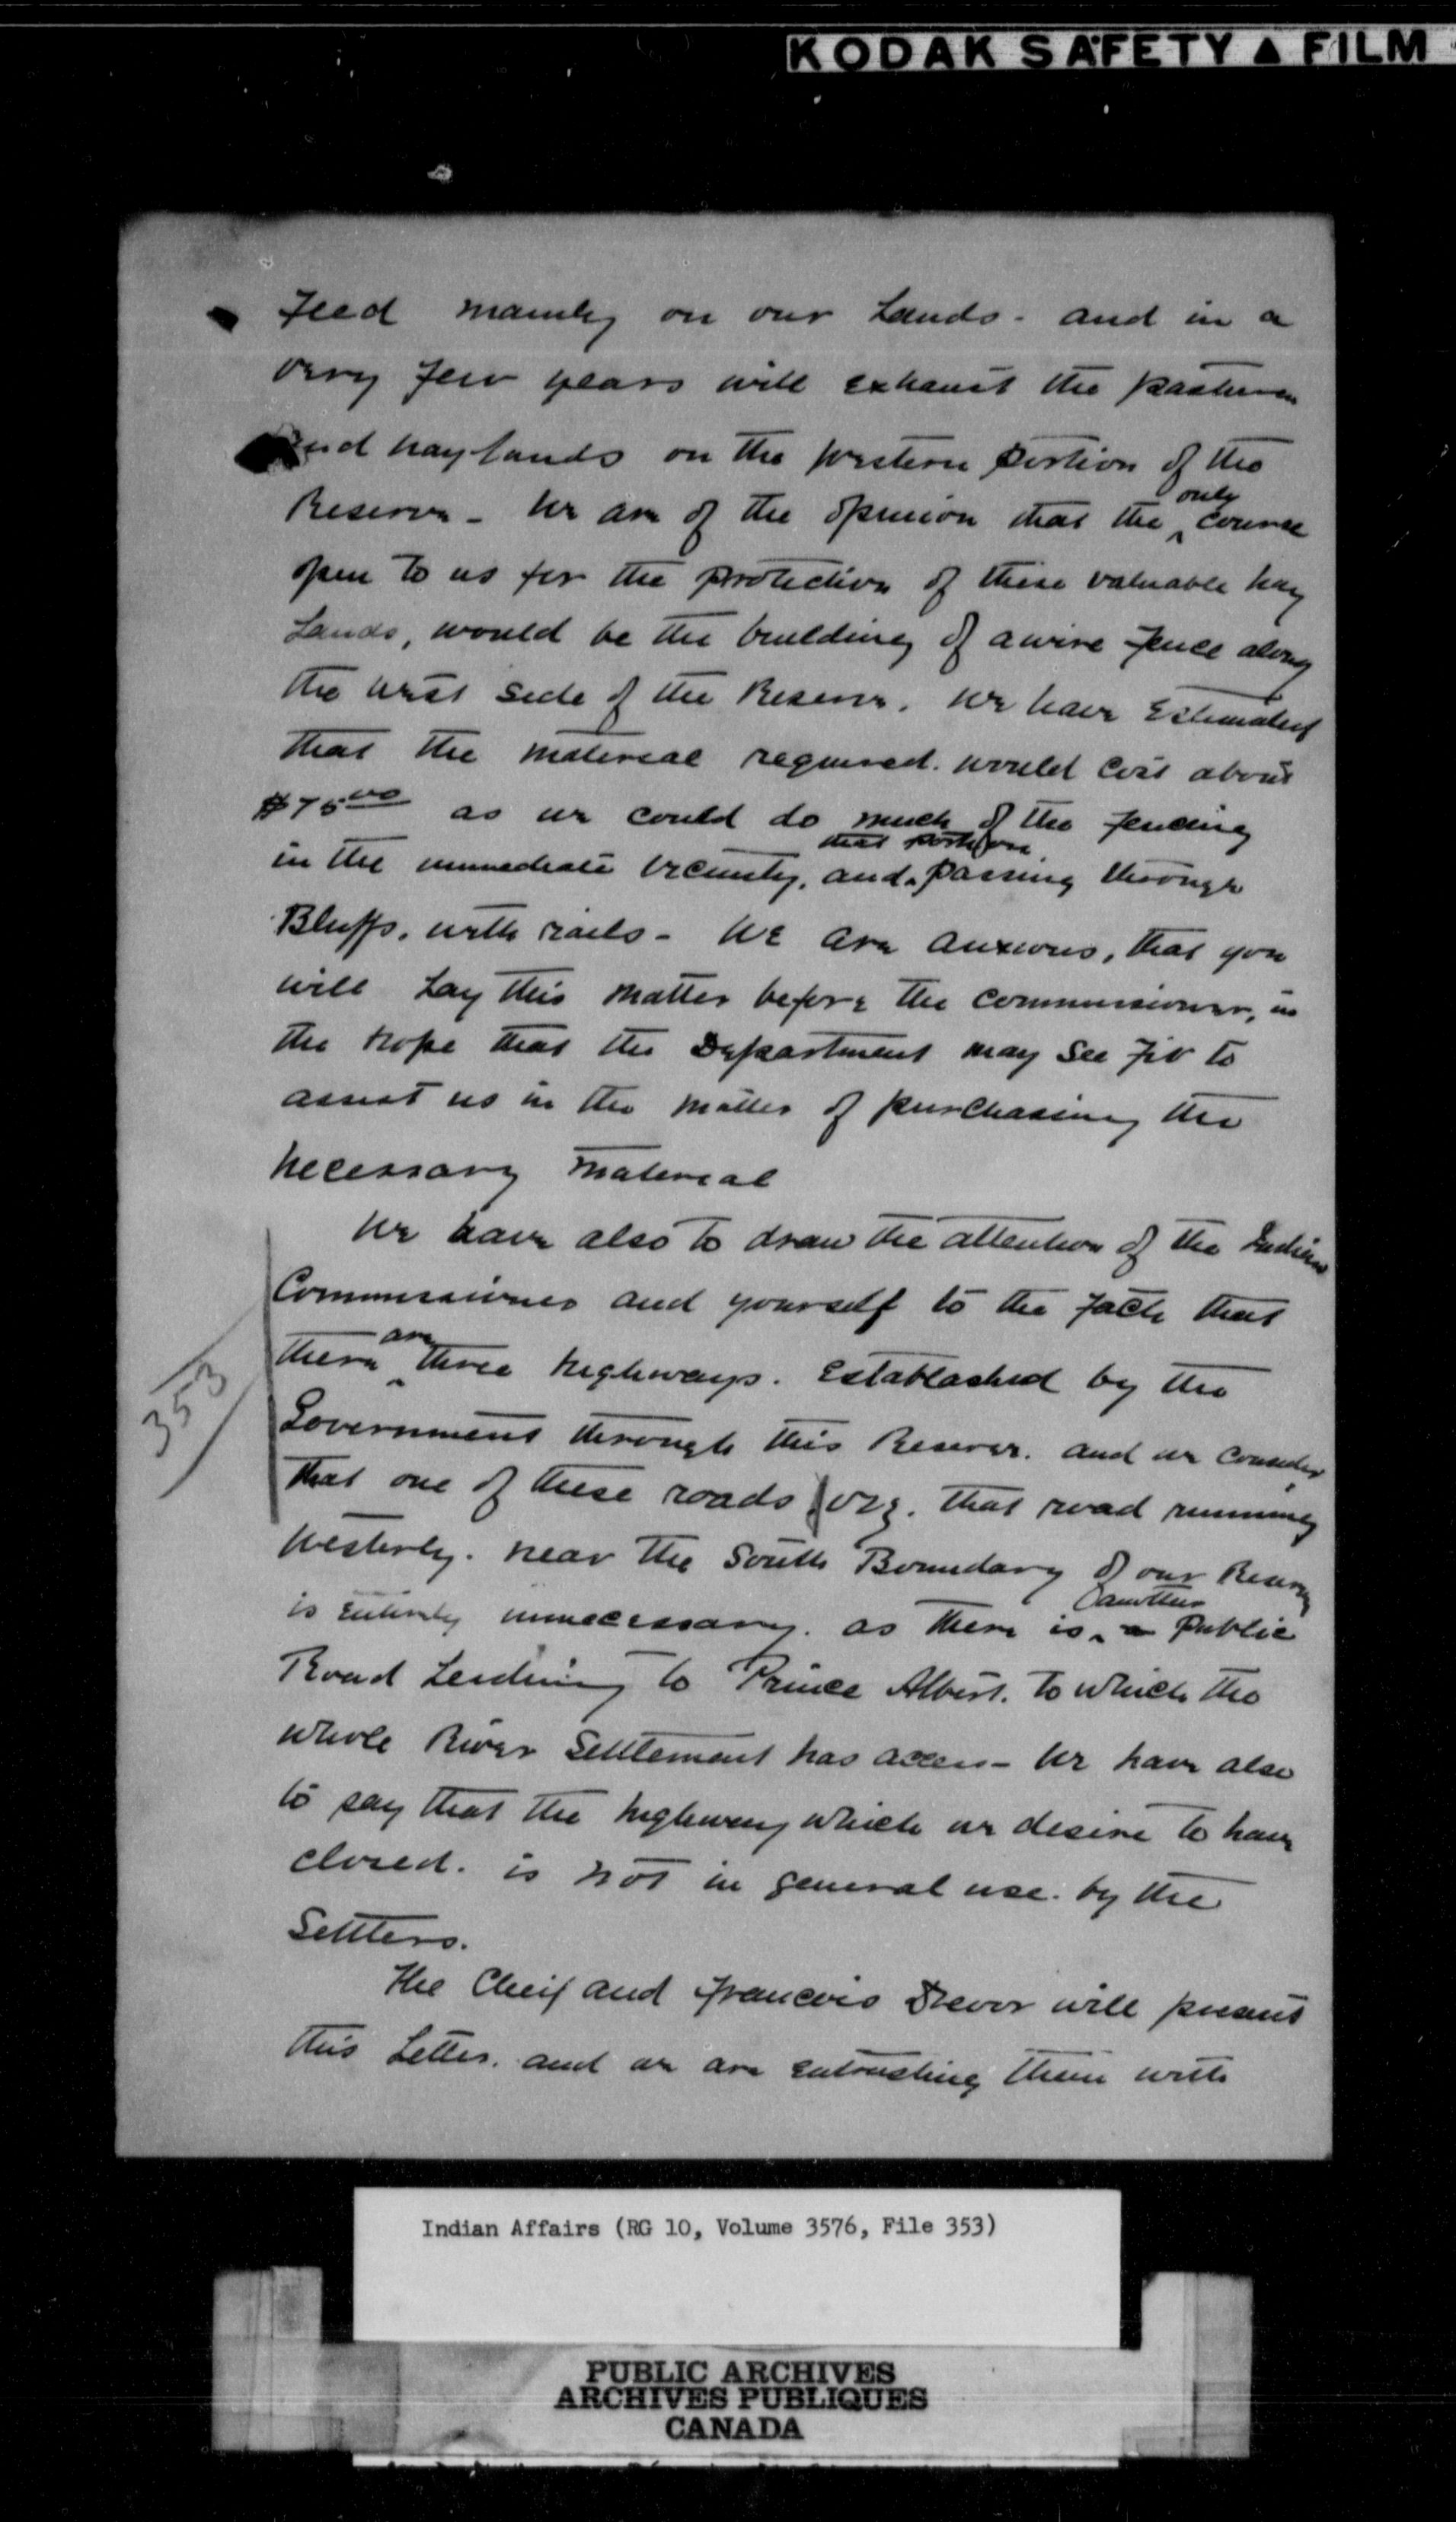 KODAK SAFETY ▲ FILM
feed mainly on our Lands - and in a
very few years will exhaust the pastures
and haylands on the western portion of the
Reserve - We are of the opinion that the only course
open to us for the protection of these valuable hay
Lands, would be the building of a wire fence along
the west side of the Reserve. We have Estimated
that the material required. would cost about
$75.00 as we could do much of the fencing
in the immediate vicinity, and that portion passing through
Bluffs, with rails - We are anxious, that you
will Lay this matter before the Commissioner, in
the hope that the Department may see fit to
assist us in the matter of purchasing the
necessary material
We have also to draw the attention of the Indian
Commissioner and yourself to the fact that
there are three highways. Established by the
353
Government through this Reserve. and we consider
that one of these roads viz. that road running
Westerly. near the South Boundary of our Reserve
is entirely unnecessary. as there is another Public
Road Leading to Prince Albert. to which the
whole River Settlement has access - We have also
to say that the highway which we desire to have
closed. is not in general use. by the
Settlers.
The Cheif and Francois Drever will present
this Letter. and we are entrusting them with
Indian Affairs (RG 10, Volume 3576, File 353)
PUBLIC ARCHIVES
ARCHIVES PUBLIQUES
CANADA